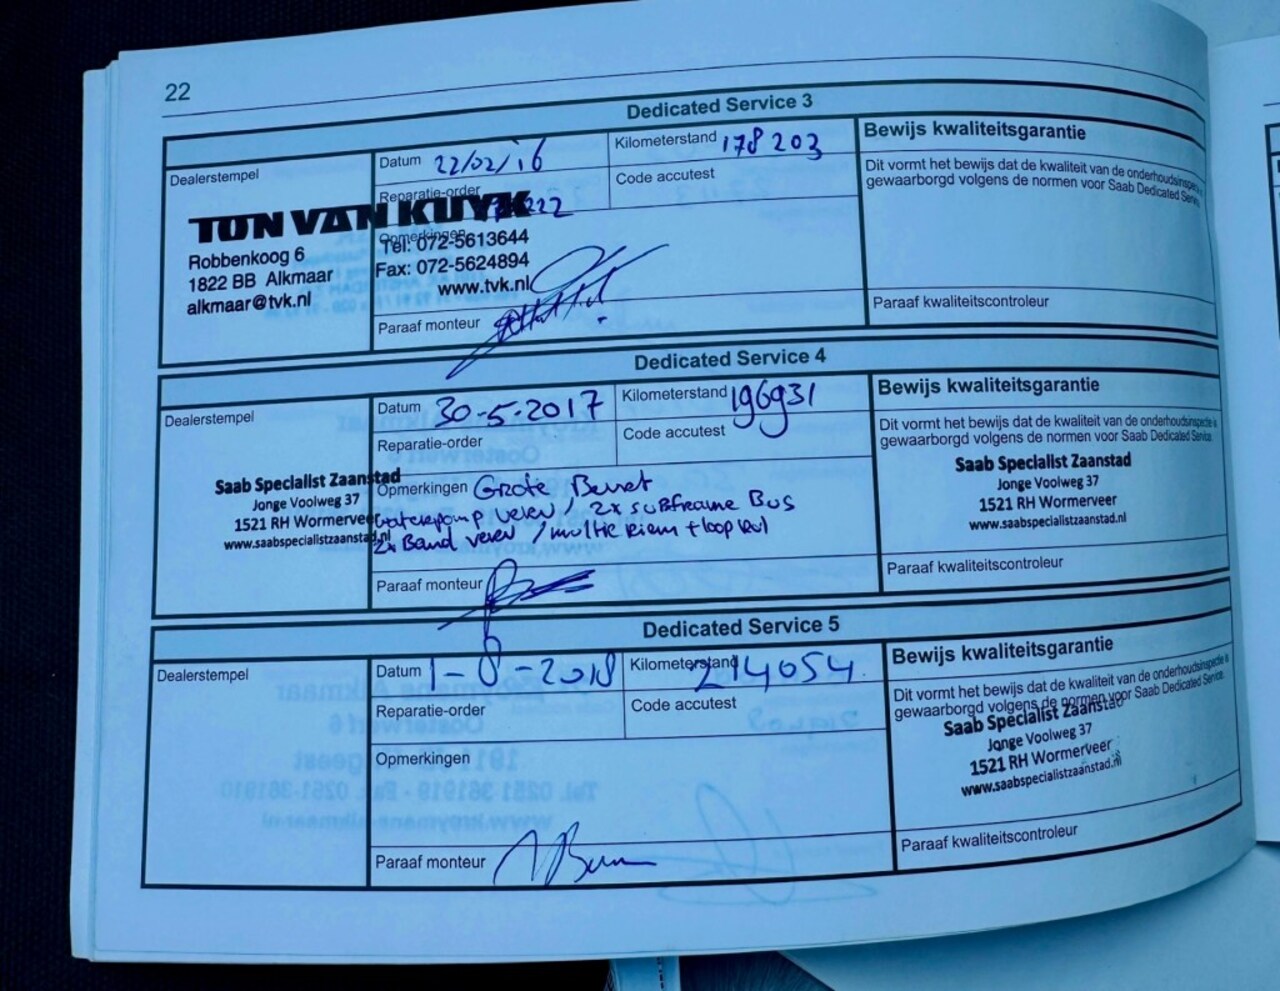 22
Dedicated Service 3
Dealerstempel
Datum 22/02/'16
Kilometerstand 178 203
Bewijs kwaliteitsgarantie
Reparatie-order
Code accutest
Dit vormt het bewijs dat de kwaliteit van de onderhoudsinspectie is
gewaarborgd volgens de normen voor Saab Dedicated Service.
TON VAN KUYK
Robbenkoog 6
1822 BB Alkmaar
alkmaar@tvk.nl
Opmerkingen
Tel: 072-5613644
Fax: 072-5624894
www.tvk.nl
Paraaf monteur
Paraaf kwaliteitscontroleur
Dedicated Service 4
Dealerstempel
Datum 30-5-2017
Kilometerstand 196931
Bewijs kwaliteitsgarantie
Reparatie-order
Code accutest
Dit vormt het bewijs dat de kwaliteit van de onderhoudsinspectie is
gewaarborgd volgens de normen voor Saab Dedicated Service.
Saab Specialist Zaanstad
Jonge Voolweg 37
1521 RH Wormerveer
www.saabspecialistzaanstad.nl
Opmerkingen Grote Beurt
Waterpomp veren / 2x subframe Bus
2x Band veren / multie Riem + loop Rol
Saab Specialist Zaanstad
Jonge Voolweg 37
1521 RH Wormerveer
www.saabspecialistzaanstad.nl
Paraaf monteur
Paraaf kwaliteitscontroleur
Dedicated Service 5
Dealerstempel
Datum 1-8-2018
Kilometerstand 214054
Bewijs kwaliteitsgarantie
Reparatie-order
Code accutest
Dit vormt het bewijs dat de kwaliteit van de onderhoudsinspectie is
gewaarborgd volgens de normen voor Saab Dedicated Service.
Saab Specialist Zaanstad
Jonge Voolweg 37
1521 RH Wormerveer
www.saabspecialistzaanstad.nl
Opmerkingen
Paraaf monteur
Paraaf kwaliteitscontroleur